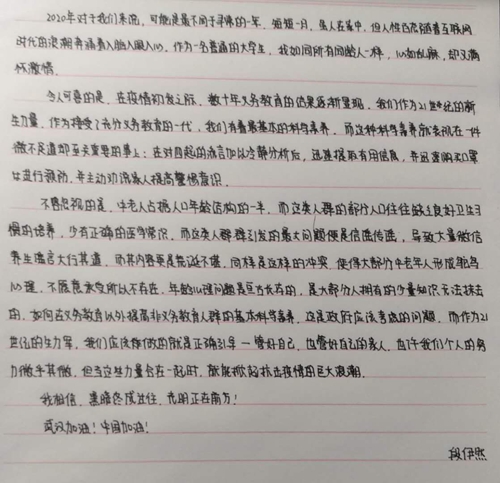 2020年对于我们来说，可能是最不同于寻常的一年，短短一月，虽人在家中，但人性百态随着互联网
时代的浪潮奔涌着入脑入眼入心。作为一名普通的大学生，我如同所有同龄人一样，心如乱麻，却又满
怀激情。
令人可喜的是，在疫情初发之际，数十年义务教育的效果逐渐显现，我们作为21世纪的新
生力量，作为接受了充分义务教育的一代，我们有着最基本的科学素养，而这种科学素养就表现在一件
微不足道却至关重要的事上：在对四起的流言加以冷静分析后，迅速提取有用信息，并迅速购买口罩
以进行预防，并主动劝说家人提高警惕意识。
不容忽视的是，中老年占据人口年龄结构的一半，而这类人群的部分人口往往缺乏良好卫生习
惯的培养，少有正确的医学常识，而这类人群引发的最大问题便是信谣传谣，导致大量微信
养生谣言大行其道，而其内容更是能诞不堪，同样是这样的冲突，使得大部分中老年人形成鸵鸟
心理，不愿意承受所以不存在，年龄心理问题是巨大长存的，是大部分人拥有的少量知识无法抹去
的，如何在义务教育以外提高非义务教育人群的基本科学素养，这是政府应该考虑的问题，而作为21
世纪的生力军，我们应该做的就是正确引导一管好自己，也管好自己的家人，也许我们个人的努
力微乎其微，但当这些力量合在一起时，就能掀起抗击疫情的巨大浪潮。
我相信，黑暗终成过往，光明正在前方！
武汉加油！中国加油！
段伊然